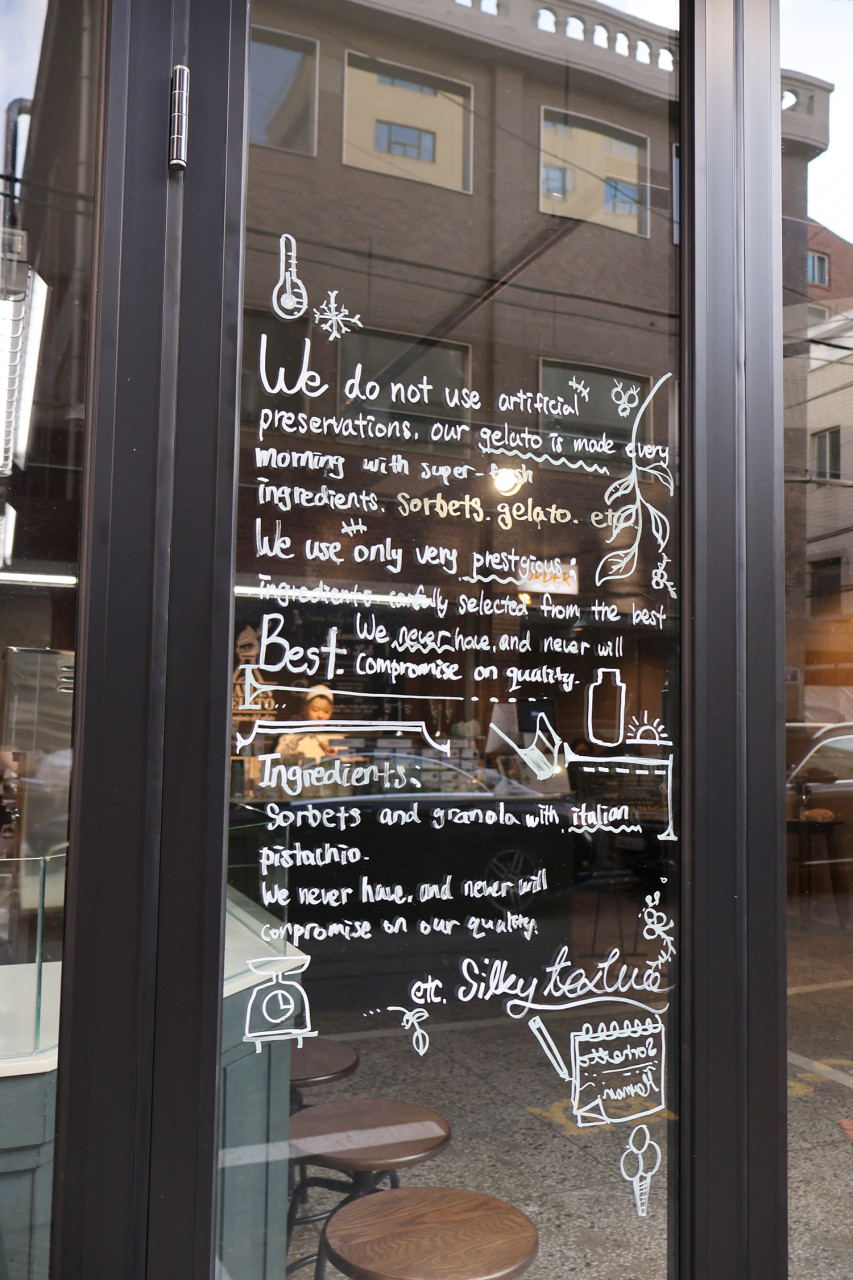 We do not use artificial
preservations. our gelato is made every
morning with super-fresh
ingredients. Sorbets. gelato. etc
We use only very prestgious
ORDER
ingredients carfully selected from the best
Best. We never have, and never will
compromise on quality.
Ingredients:
Sorbets and granola with italian
pistachio.
We never have, and never will
conpromise on our quality.
etc. Silky texture
Sorbetto